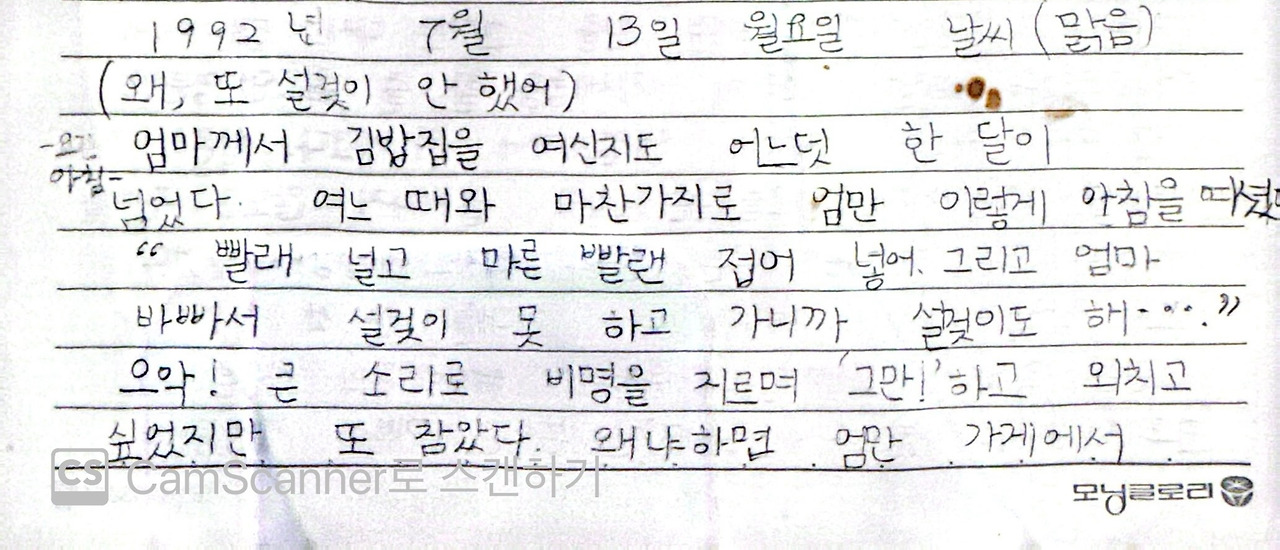 1992년 7월 13일 월요일 날씨 (맑음)
(왜, 또 설겆이 안 했어)
엄마께서 김밥집을 여신지도 어느덧 한 달이
-오간
아침-
넘었다. 여느 때와 마찬가지로 엄만 이렇게 아침을 떼셨다
“ 빨래 널고 마른 빨랜 접어 넣어. 그리고 엄마
바빠서 설겆이 못 하고 가니까 설겆이도 해·····”
으악! 큰 소리로 비명을 지르며 '그만!' 하고 외치고
싶었지만 또 참았다. 왜냐하면 엄만 가게에서
CS CamScanner로 스캔하기
모닝글로리